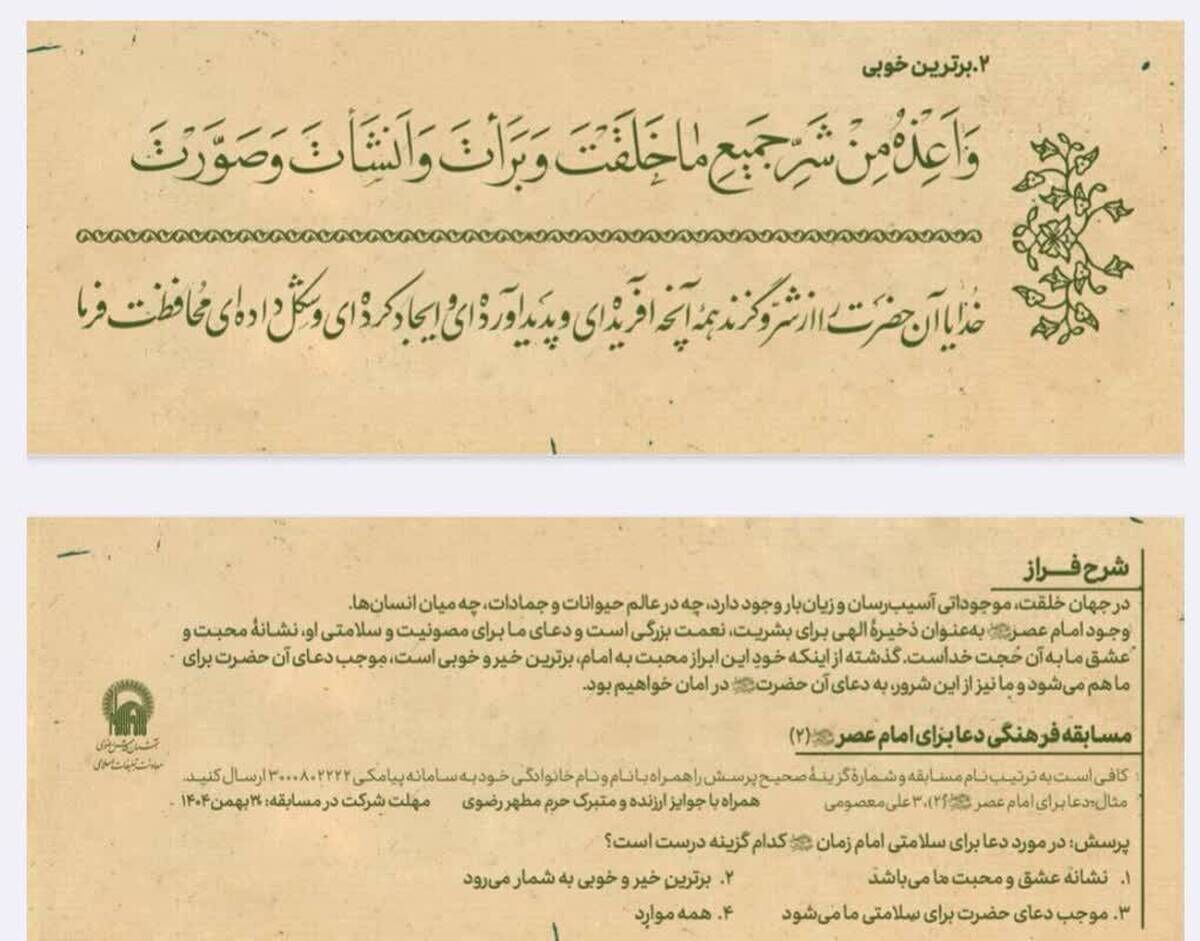 ۲.برترین خوبی
وَاَعِذْهُ مِنْ شَرِّ جَمیعِ مٰا خَلَقْتَ وَبَرَأْتَ وَاَنْشَأْتَ وَصَوَّرْتَ
خدایا آن حضرت را از شر و گزند همهٔ آنچه آفریده‌ای و پدید آورده‌ای و ایجاد کرده‌ای و شکل داده‌ای محافظت فرما
شرح فراز
در جهان خلقت، موجوداتی آسیب‌رسان و زیان‌بار وجود دارد، چه در عالم حیوانات و جمادات، چه میان انسان‌ها.
وجود امام عصر به‌عنوان ذخیرهٔ الهی برای بشریت، نعمت بزرگی است و دعای ما برای مصونیت و سلامتی او، نشانهٔ محبت و
عشق ما به آن حُجت خداست. گذشته از اینکه خودِ این ابراز محبت به امام، برترین خیر و خوبی است، موجب دعای آن حضرت برای
ما هم می‌شود و ما نیز از این شرور، به دعای آن حضرت در امان خواهیم بود.
مسابقه فرهنگی دعا برای امام عصر (۲)
کافی است به ترتیب نام مسابقه و شمارهٔ گزینهٔ صحیح پرسش را همراه با نام و نام خانوادگی خود به سامانه پیامکی ۳۰۰۰۸۰۲۲۲۲ ارسال کنید.
مثال: دعا برای امام عصر (۲)، ۳ علی معصومی همراه با جوایز ارزنده و متبرک حرم مطهر رضوی مهلت شرکت در مسابقه: ۲۰ بهمن ۱۴۰۴
پرسش: در مورد دعا برای سلامتی امام زمان کدام گزینه درست است؟
۱. نشانه عشق و محبت ما می‌باشد ۲. برترین خیر و خوبی به شمار می‌رود
۳. موجب دعای حضرت برای سلامتی ما می‌شود ۴. همه موارد
معاونت تبلیغات اسلامی